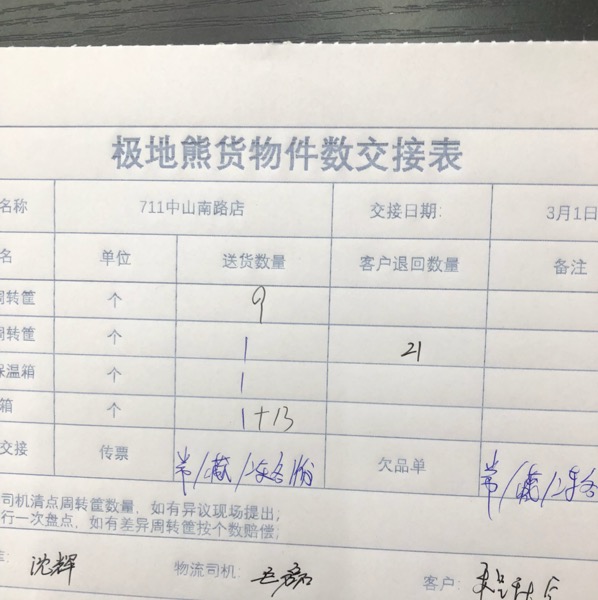 极地熊货物件数交接表
名称 711中山南路店 交接日期: 3月1日
名 单位 送货数量 客户退回数量 备注
周转筐 个 9
周转筐 个 1 21
保温箱 个 1
箱 个 1+13
交接 传票 欠品单
司机清点周转筐数量,如有异议现场提出;
行一次盘点,如有差异周转筐按个数赔偿;
沈辉 物流司机: 客户: